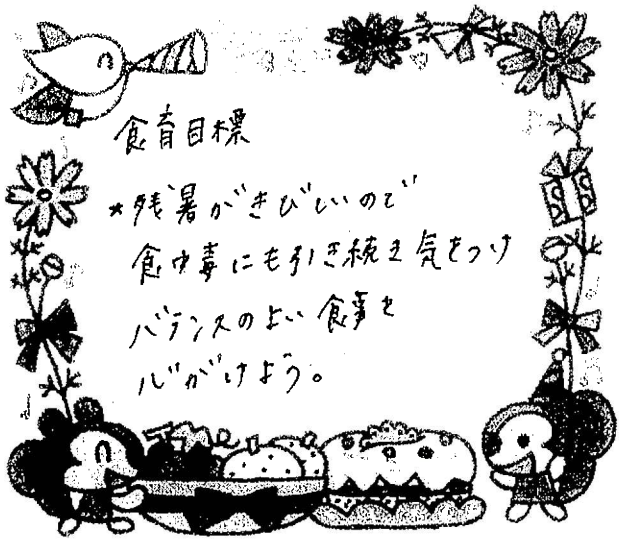 食育目標
*残暑がきびしいので
食中毒にも引き続き気をつけ
バランスのよい食事を
心がけよう。